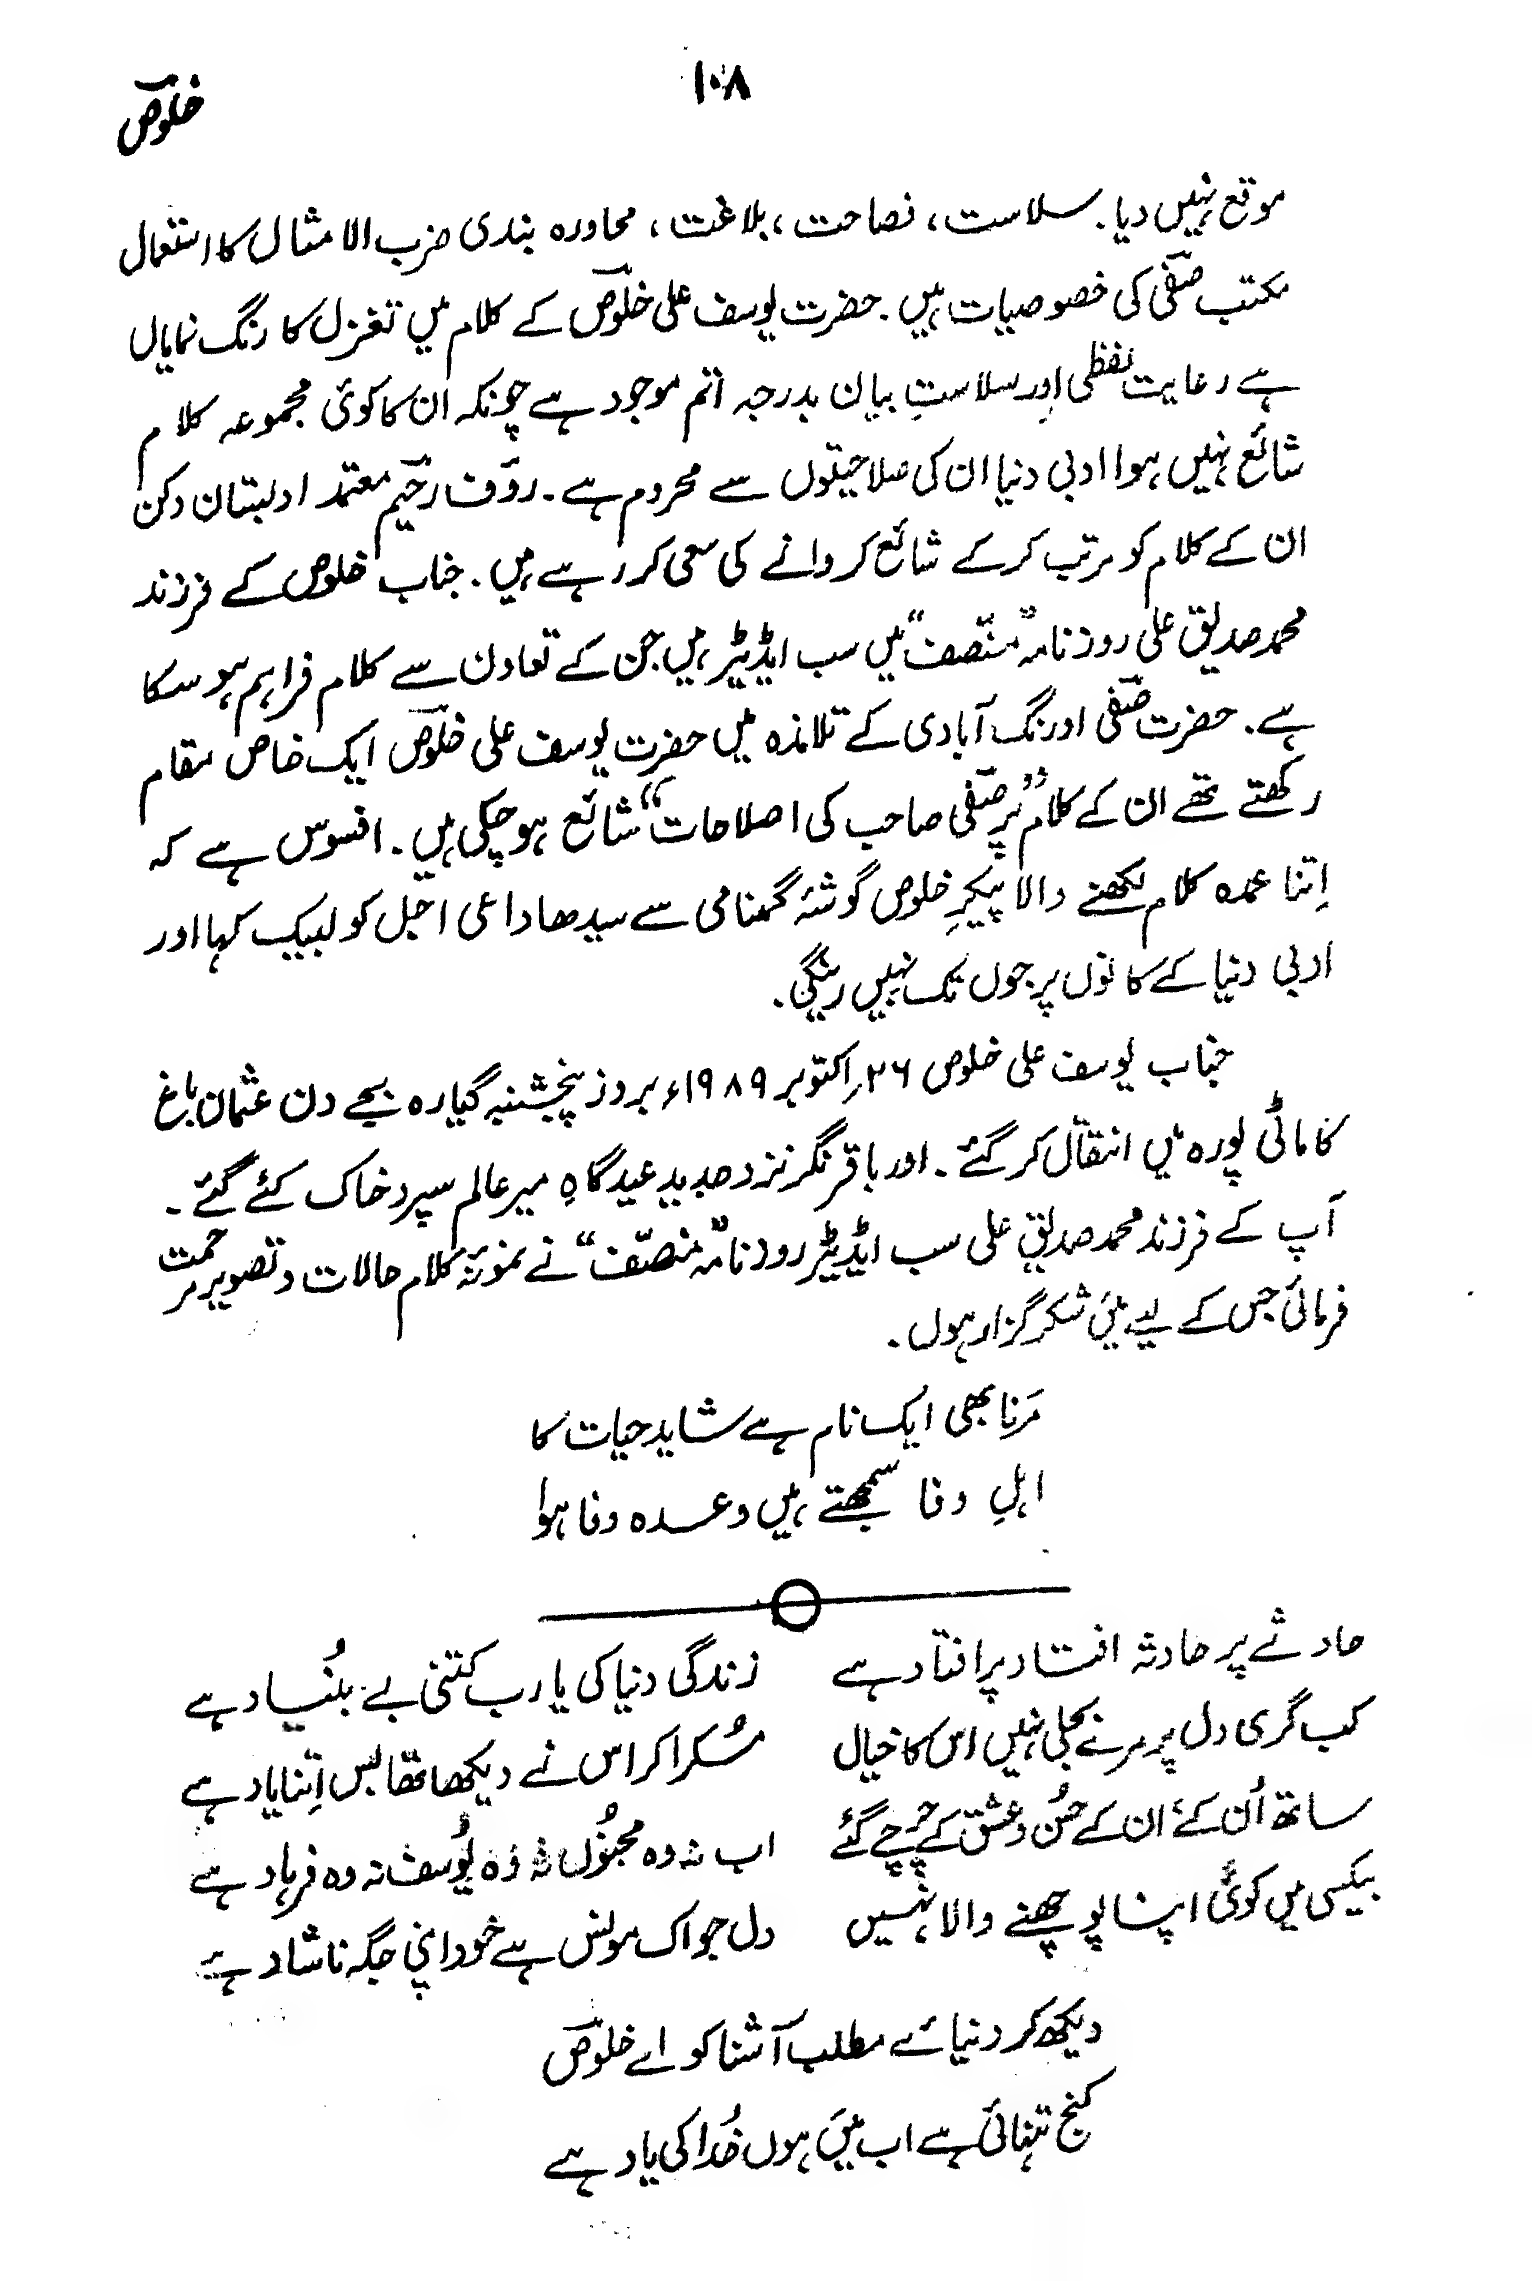 ۱۰۸
خلوصؔ
موقع نہیں دیا۔ سلاست، فصاحت، بلاغت، محاورہ بندی ضرب الامثال کا استعمال
مکتب صفیؔ کی خصوصیات ہیں۔ حضرت یوسف علی خلوصؔ کے کلام میں تغزل کا رنگ نمایاں
ہے رعایت لفظی اور سلاستِ بیان بدرجہ اتم موجود ہے چونکہ ان کا کوئی مجموعہ کلام
شائع نہیں ہوا ادبی دنیا ان کی صلاحیتوں سے محروم ہے۔ روؤف رحیمؔ معتمد ادبستان دکن
ان کے کلام کو مرتب کرکے شائع کروانے کی سعی کر رہے ہیں۔ جناب خلوص کے فرزند
محمد صدیق علی روزنامہ "منصف" میں سب ایڈیٹر ہیں جن کے تعاون سے کلام فراہم ہو سکا
ہے۔ حضرت صفیؔ اورنگ آبادی کے تلامذہ میں حضرت یوسف علی خلوصؔ ایک خاص مقام
رکھتے تھے ان کے کلام "پر صفیؔ صاحب کی اصلاحات" شائع ہو چکی ہیں۔ افسوس ہے کہ
اِتنا عمدہ کلام لکھنے والا پیکرِ خلوص گوشۂ گمنامی سے سیدھا داعی اجل کو لبیک کہا اور
ادبی دنیا کے کانوں پر جوں تک نہیں رینگی۔
جناب یوسف علی خلوص ۲۶؍اکتوبر ۱۹۸۹ء بروز پنجشنبہ گیارہ بجے دن عثمان باغ
کاماٹی پورہ میں انتقال کر گئے۔ اور باقر نگر نزد جدید عیدگاہِ میر عالم سپرد خاک کئے گئے۔
آپ کے فرزند محمد صدیق علی سب ایڈیٹر روزنامہ "منصف" نے نمونۂ کلام حالات و تصویر مرحمت
فرمائی جس کے لیے میں شکر گزار ہوں۔
مَرنا بھی ایک نام ہے شاید حیات کا
اہلِ وفا سمجھتے ہیں وعدہ وفا ہوا
حادثے پر حادثہ افتاد پر افتاد ہے زندگی دنیا کی یارب کتنی بے بُنیاد ہے
کب گری دل پر مرے بجلی نہیں اس کا خیال مُسکرا کر اس نے دیکھا تھا بس اِتنا یاد ہے
ساتھ اُن کے ان کے حسُن و عشق کے چرچے گئے اب نہ وہ مجنوُں نہ وُہ یُوسف نہ وہ فرہاد ہے
بیکسی میں کوئی اپنا پوچھنے والا نہیں دل جو اک مونس ہے خود اپنی جگہ ناشاد ہے
دیکھ کر دنیائے مطلب آشنا کو اے خلوصؔ
کنج تنہائی ہے اب میَں ہوں خُدا کی یاد ہے